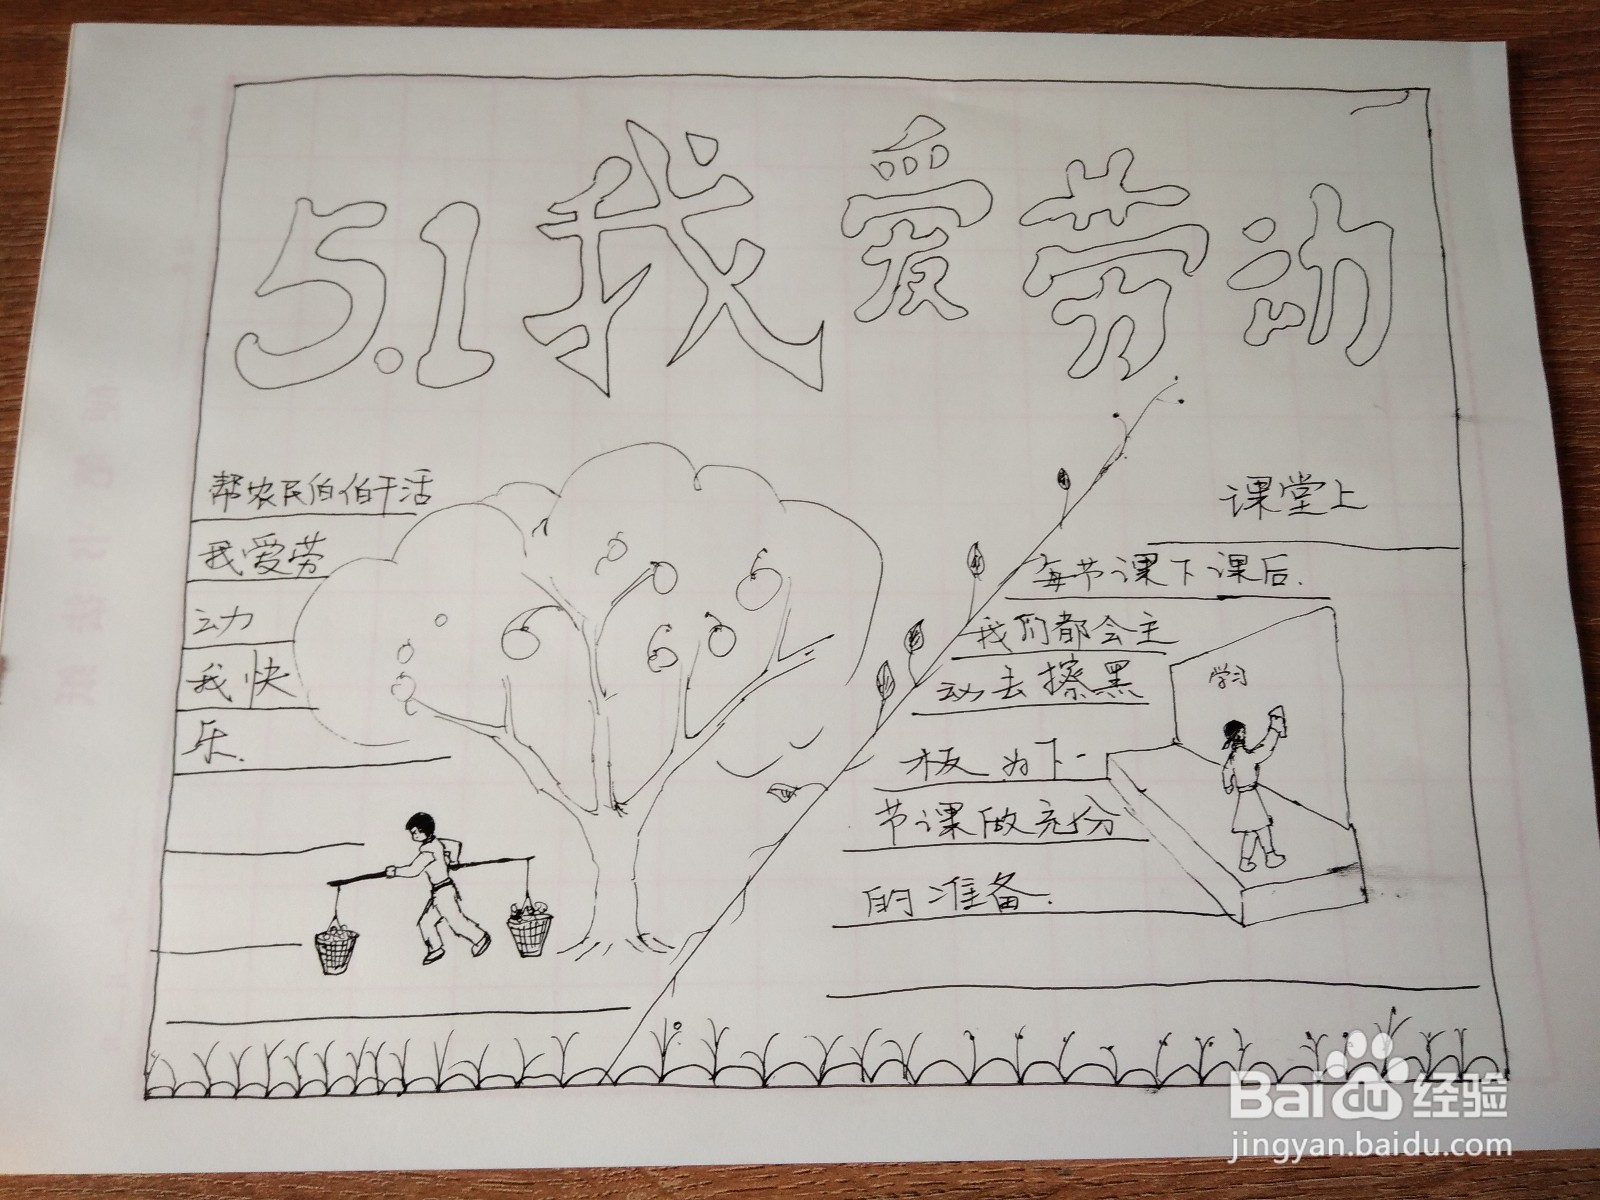 5.1我爱劳动
帮农民伯伯干活
我爱劳
动
我快
乐.
课堂上
每节课下课后.
我们都会主
动去擦黑
板为下一
节课做充份
的准备.
学习
Baidu经验
jingyan.baidu.com